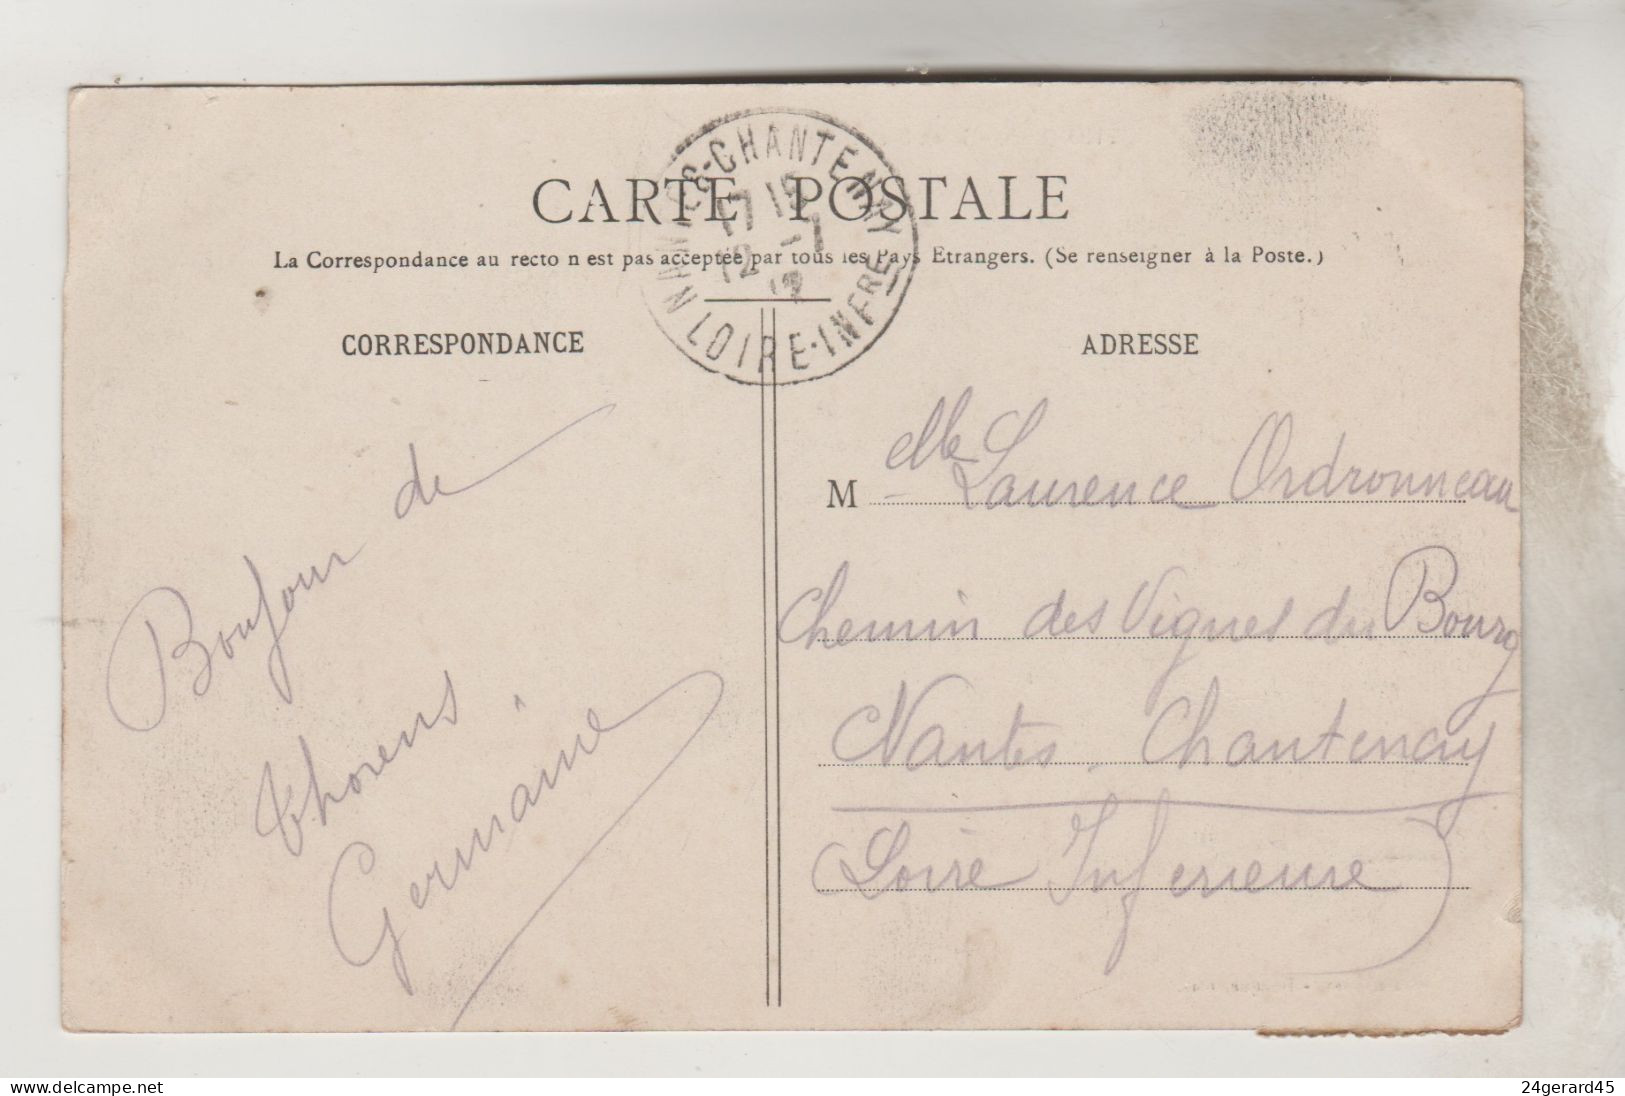 CARTE POSTALE
La Correspondance au recto n est pas acceptée par tous les Pays Etrangers. (Se renseigner à la Poste.)
NANTES-CHANTENAY
17 15
12 -7
12
LOIRE-INFRE
CORRESPONDANCE
Bonjour de
Thorens
Germaine
ADRESSE
M elle Laurence Ordronneau
Chemin des Vignes du Bourg
Nantes. Chantenay
Loire Inferieure
24gerard45
www.delcampe.net